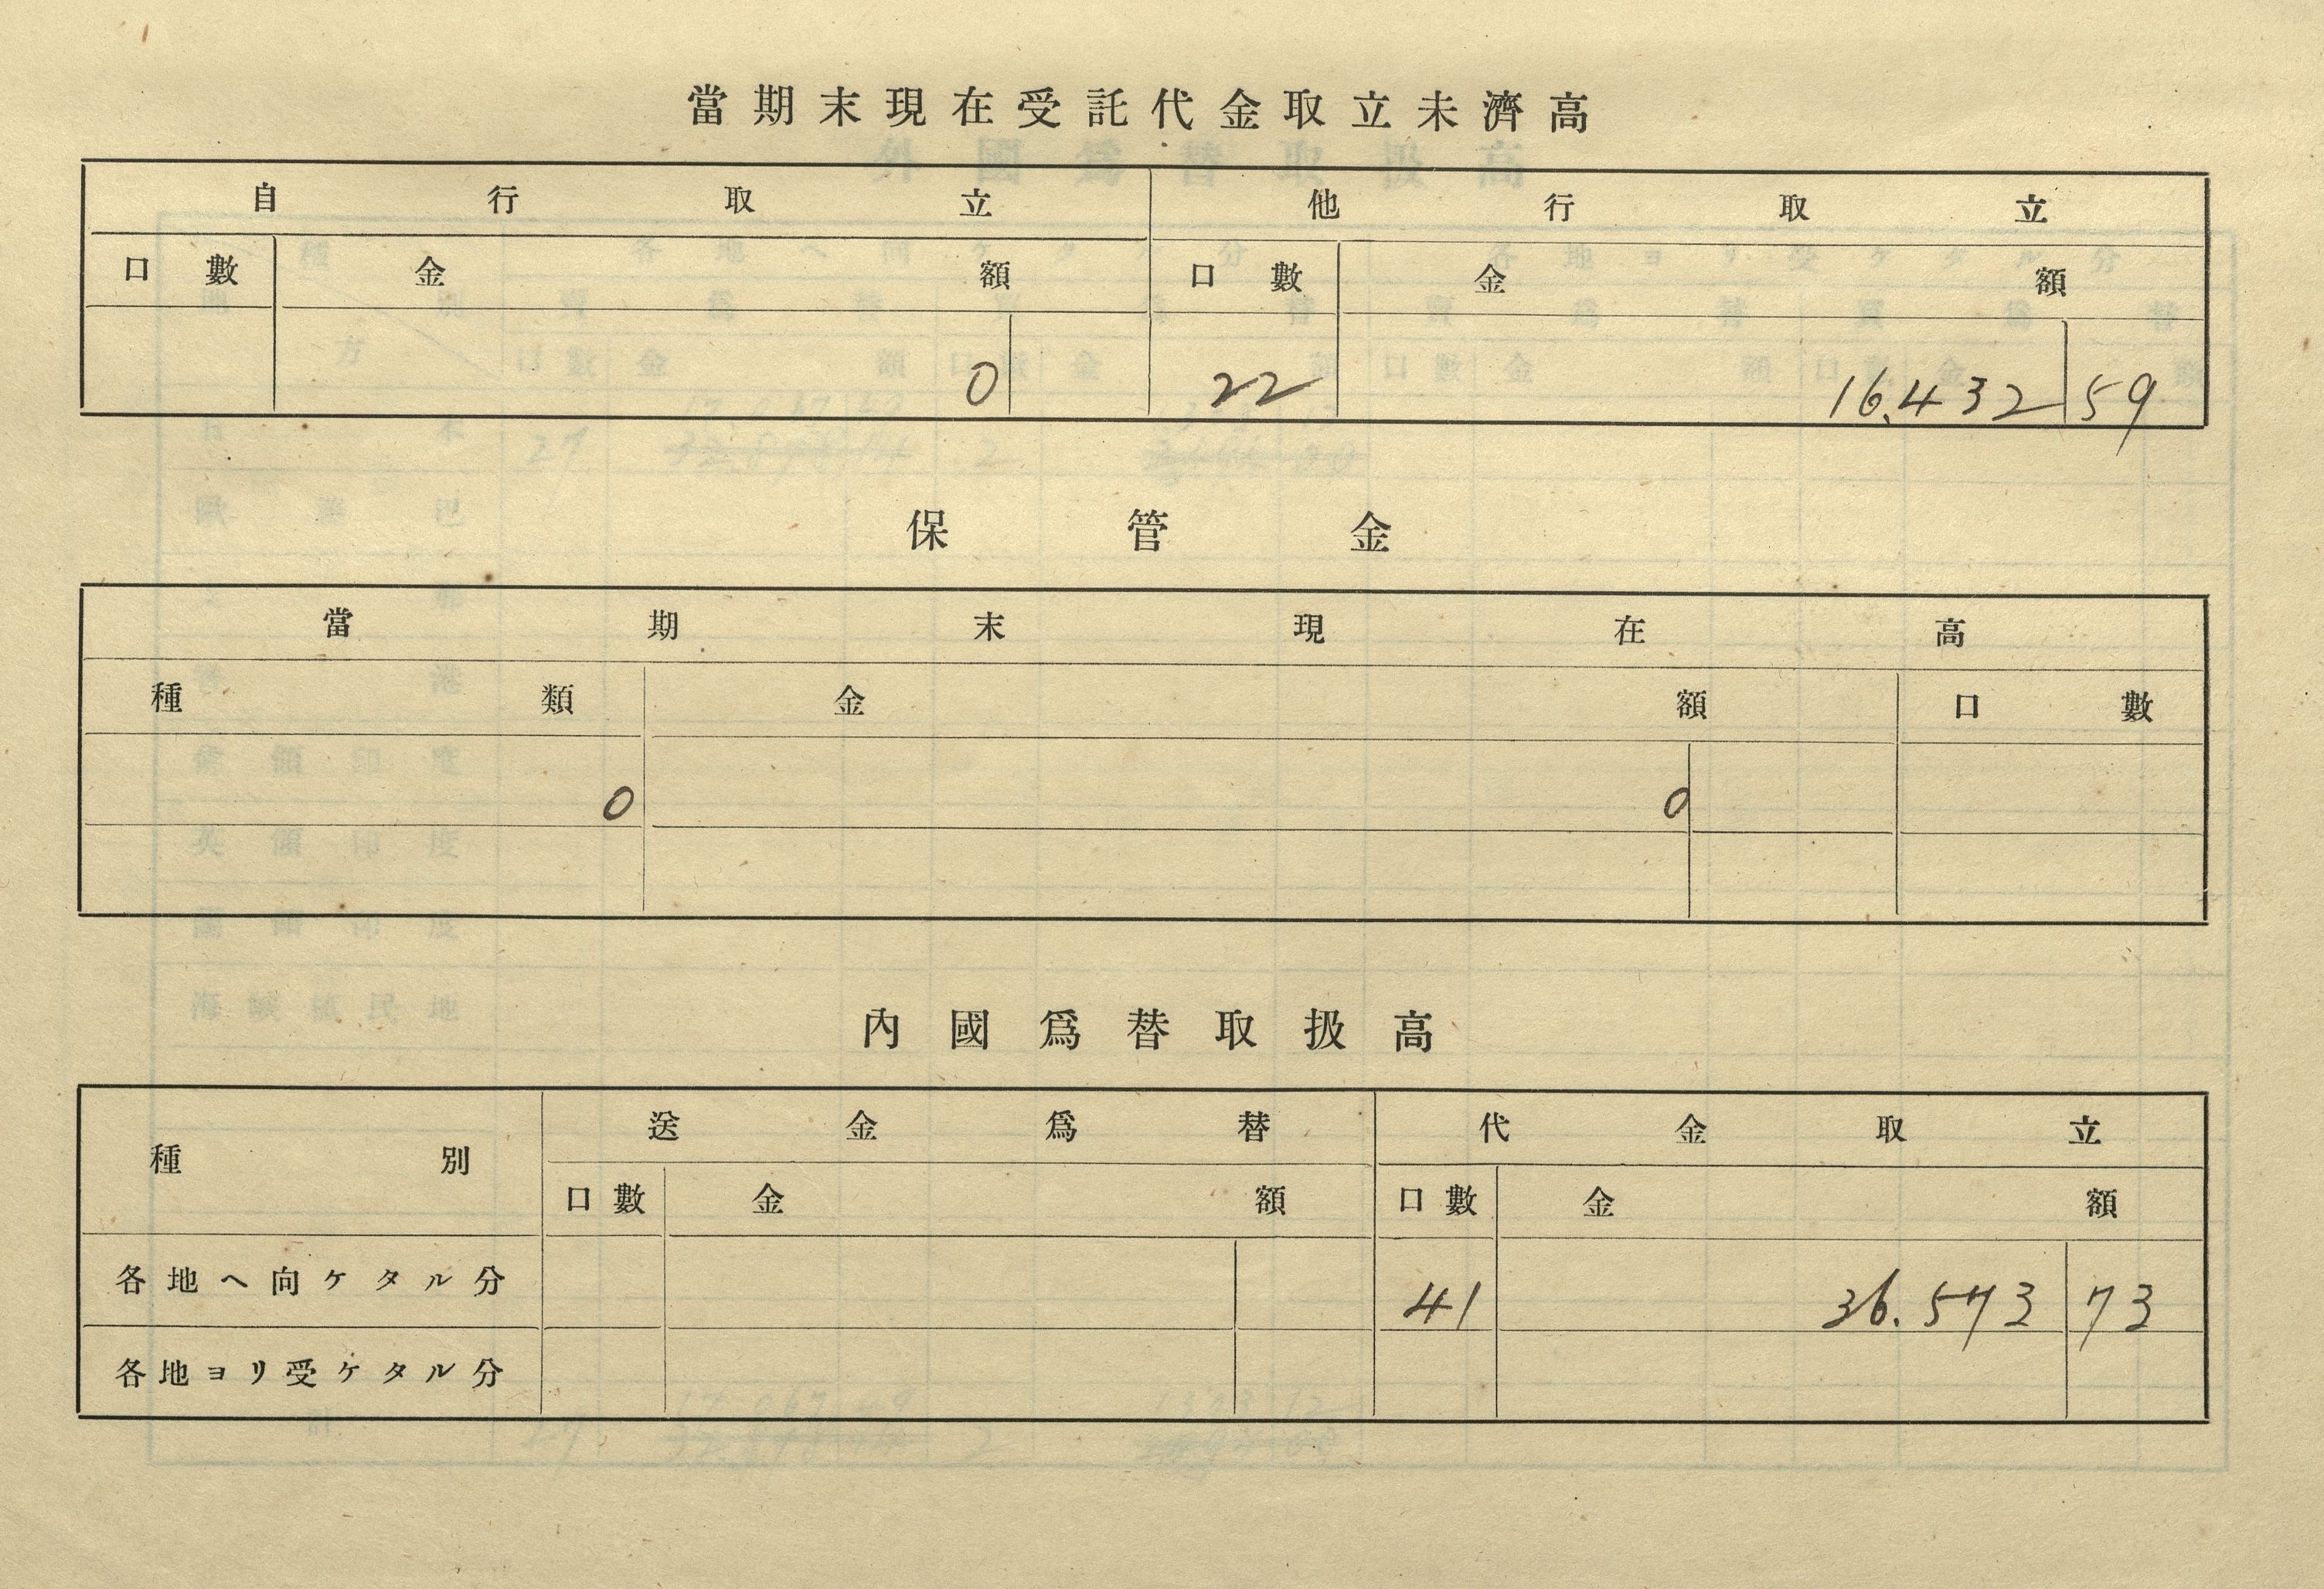 當期末現在受託代金取立未濟高
自行取立 他行取立
口數 金額 口數 金額
0 22 16.432 59
保管金
當期末現在高
種類 金額 口數
0 0
內國爲替取扱高
種別 送金爲替 代金取立
口數 金額 口數 金額
各地へ向ケタル分 41 36.573 73
各地ヨリ受ケタル分